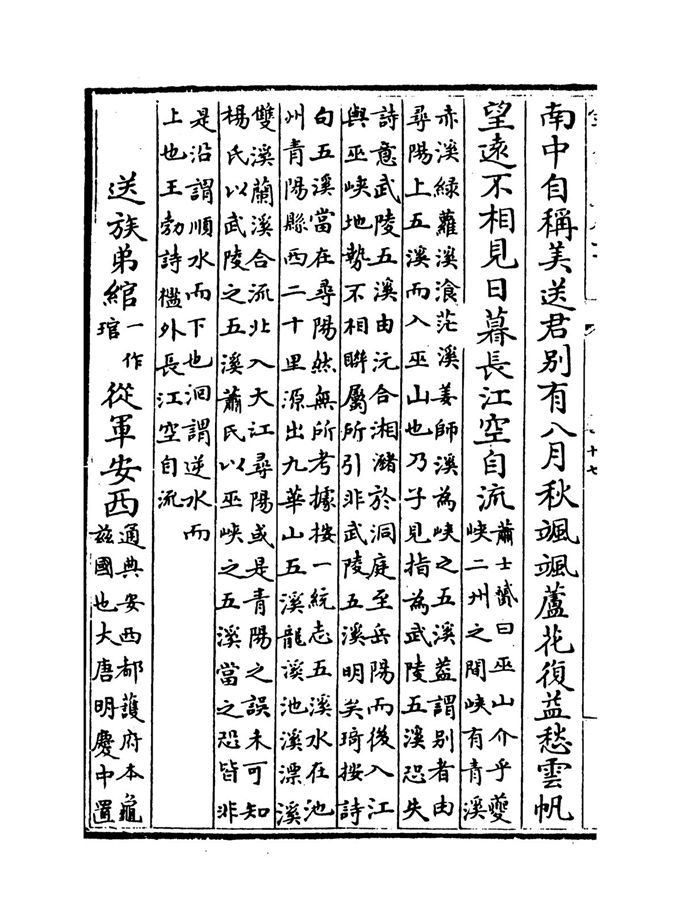 南中自稱美送君別有八月秋颯颯蘆花復益愁雲帆
望遠不相見日暮長江空自流
蕭士贇曰巫山介乎夔
峽二州之間峽有青溪
赤溪綠蘿溪滄茫溪姜師溪為峽之五溪葢謂別者由
尋陽上五溪而入巫山也乃子見指為武陵五溪恐失
詩意武陵五溪由沅合湘瀦於洞庭至岳陽而後入江
與巫峽地勢不相聨屬所引非武陵五溪明矣琦按詩
句五溪當在尋陽然無所考據按一統志五溪水在池
州青陽縣西二十里源出九華山五溪龍溪池溪漂溪
雙溪蘭溪合流北入大江尋陽或是青陽之誤未可知
楊氏以武陵之五溪蕭氏以巫峽之五溪當之恐皆非
是沿謂順水而下也洄謂逆水而
上也王勃詩檻外長江空自流
送族弟綰一作琯從軍安西
通典安西都護府本龜
兹國也大唐明慶中置